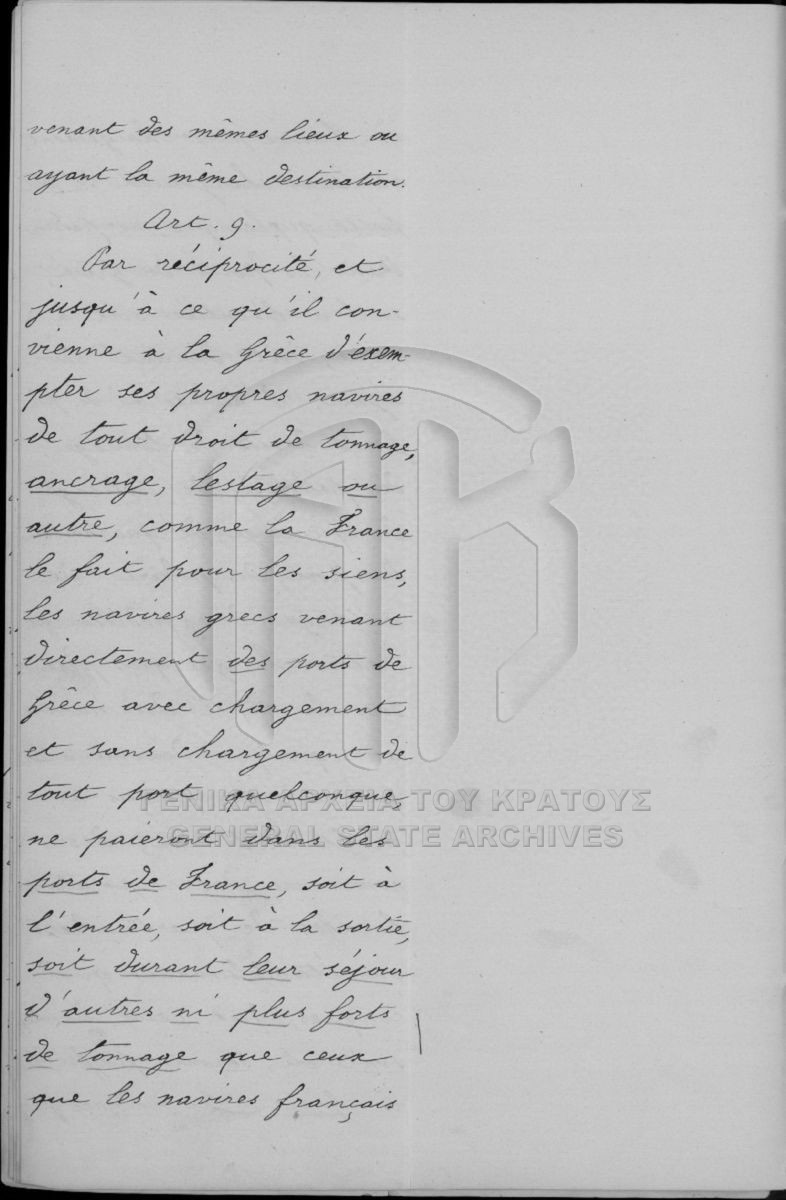 venant des mêmes lieux ou
ayant la même destination.
Art. 9.
Par réciprocité, et
jusqu'à ce qu'il con-
vienne à la Grêce d'exem-
pter ses propres navires
de tout droit de tonnage,
ancrage, lestage ou
autre, comme la France
le fait pour les siens,
les navires grecs venant
directement des ports de
Grêce avec chargement
et sans chargement de
tout port quelconque,
ΓΕΝΙΚΑ ΑΡΧΕΙΑ ΤΟΥ ΚΡΑΤΟΥΣ
GENERAL STATE ARCHIVES
ne paieront dans les
ports de France, soit à
l'entrée, soit à la sortie,
soit durant leur séjour
d'autres ni plus forts
de tonnage que ceux
que les navires français